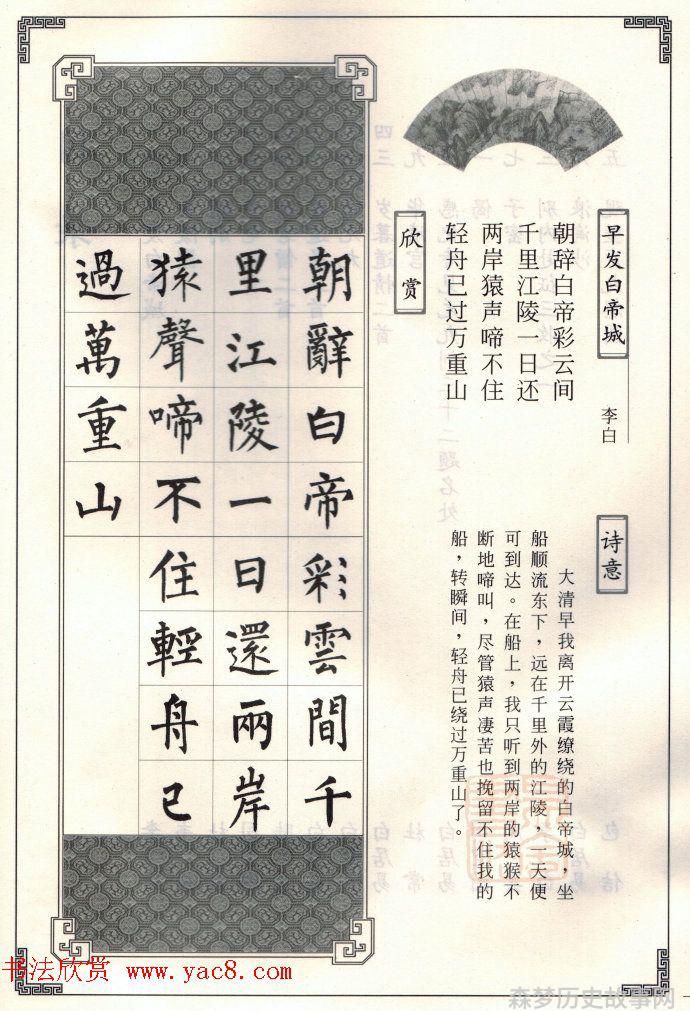 早发白帝城
李白
欣赏
朝辞白帝彩云间
千里江陵一日还
两岸猿声啼不住
轻舟已过万重山
诗意
大清早我离开云霞缭绕的白帝城，坐
船顺流东下，远在千里外的江陵，一天便
可到达。在船上，我只听到两岸的猿猴不
断地啼叫，尽管猿声凄苦也挽留不住我的
船，转瞬间，轻舟已绕过万重山了。
朝辭白帝彩雲間千
里江陵一日還兩岸
猿聲啼不住輕舟已
過萬重山
书法欣赏 www.yac8.com
森梦历史故事网